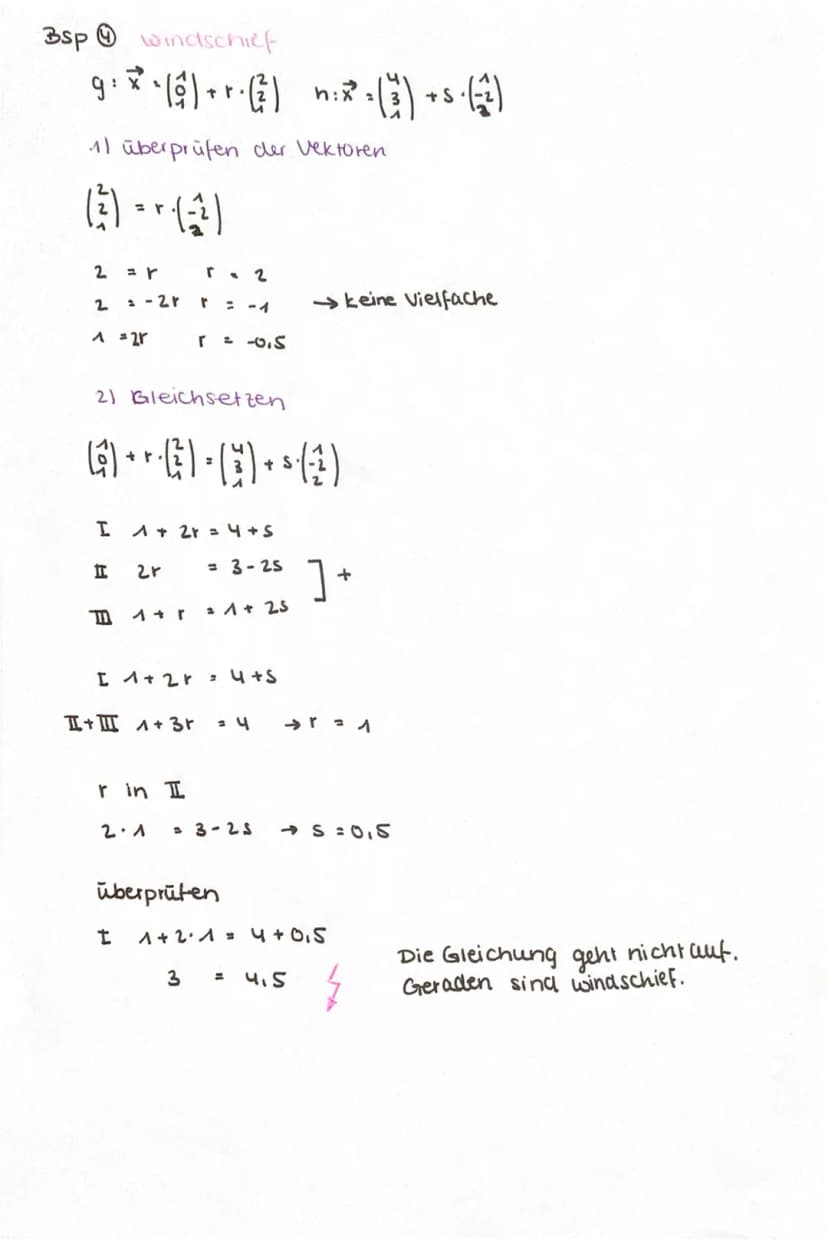 Bsp ④ windschief
g: x⃗ = (1 0 1) + r · (2 2 1) h: x⃗ = (4 3 1) + s · (1 -2 2)
1) überprüfen der Vektoren
(2 2 1) = r · (1 -2 2)
2 = r r = 2
2 = -2r r = -1 → keine Vielfache
1 = 2r r = -0,5
2) Gleichsetzen
(1 0 1) + r · (2 2 1) = (4 3 1) + s · (1 -2 2)
I 1 + 2r = 4 + s
II 2r = 3 - 2s ] +
III 1 + r = 1 + 2s
I 1 + 2r = 4 + s
II + III 1 + 3r = 4 → r = 1
r in II
2 · 1 = 3 - 2s → s = 0,5
überprüfen
I 1 + 2 · 1 = 4 + 0,5
3 = 4,5
Die Gleichung geht nicht auf.
Geraden sind windschief.